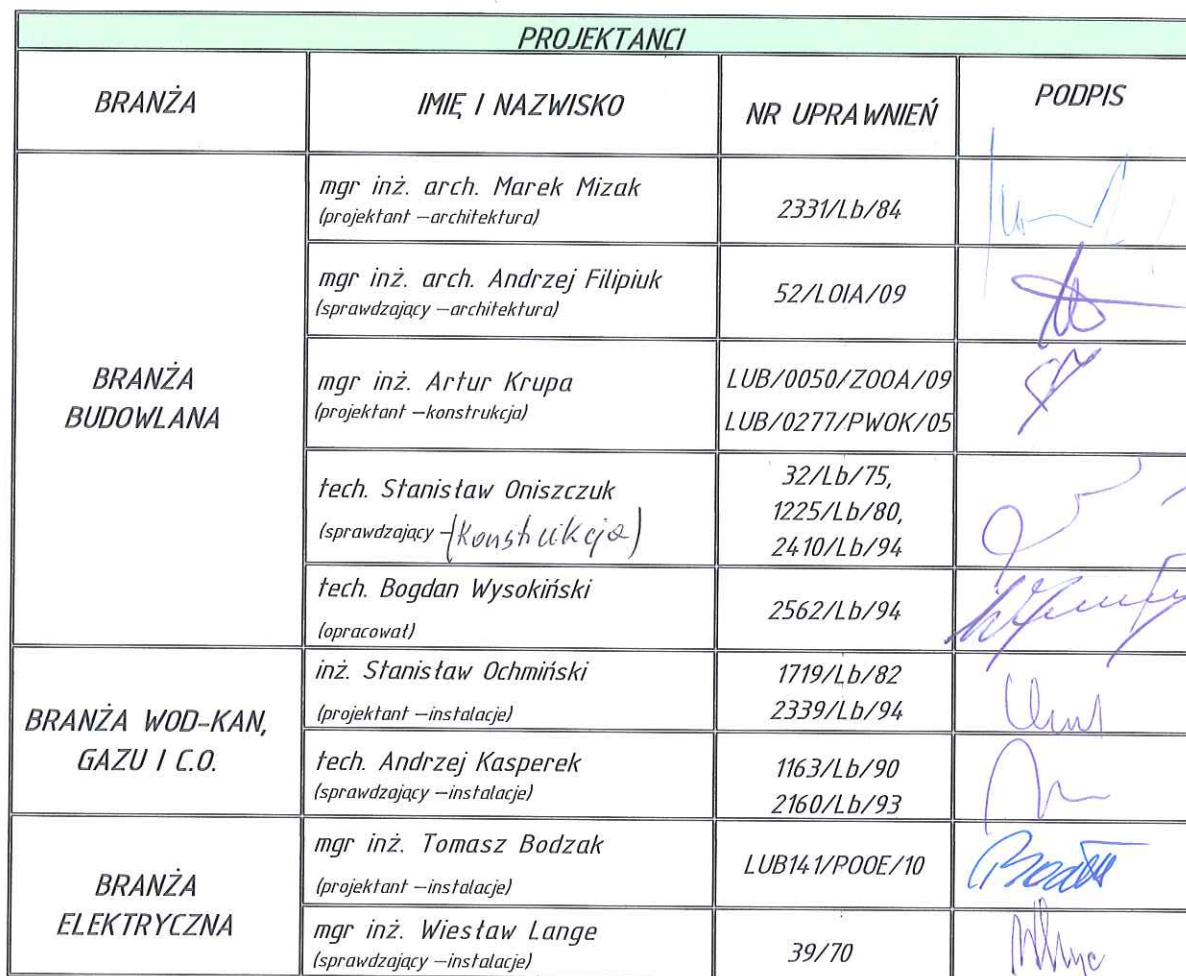 PROJEKTANCI
BRANŻA IMIĘ I NAZWISKO NR UPRAWNIEŃ PODPIS
BRANŻA
BUDOWLANA
mgr inż. arch. Marek Mizak
(projektant –architektura)
2331/Lb/84
mgr inż. arch. Andrzej Filipiuk
(sprawdzający –architektura)
52/LOIA/09
mgr inż. Artur Krupa
(projektant –konstrukcja)
LUB/0050/ZOOA/09
LUB/0277/PWOK/05
tech. Stanisław Oniszczuk
(sprawdzający –(Konstrukcja)
32/Lb/75,
1225/Lb/80,
2410/Lb/94
tech. Bogdan Wysokiński
(opracował)
2562/Lb/94
BRANŻA WOD-KAN,
GAZU I C.O.
inż. Stanisław Ochmiński
(projektant –instalacje)
1719/Lb/82
2339/Lb/94
tech. Andrzej Kasperek
(sprawdzający –instalacje)
1163/Lb/90
2160/Lb/93
BRANŻA
ELEKTRYCZNA
mgr inż. Tomasz Bodzak
(projektant –instalacje)
LUB141/POOE/10
mgr inż. Wiesław Lange
(sprawdzający –instalacje)
39/70